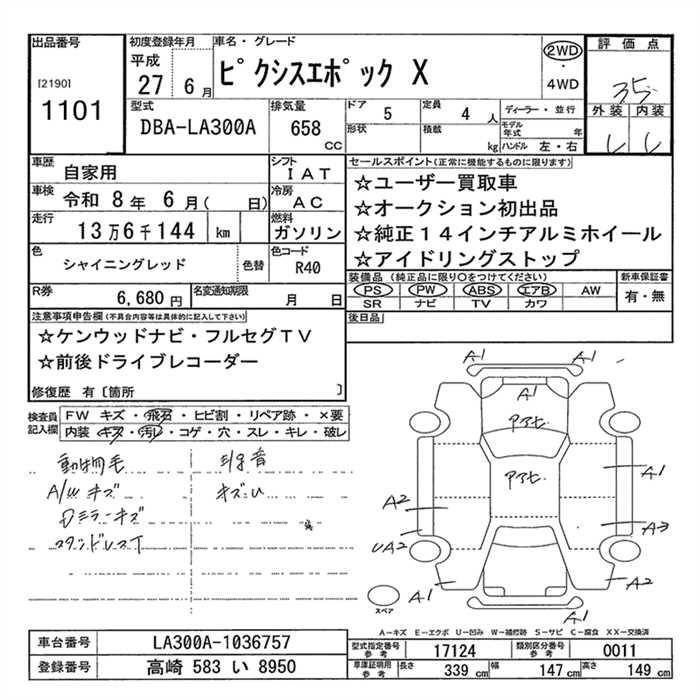 出品番号 初度登録年月 車名・グレード 2WD 評価点
[2190] 平成 ピクシスエポック X ・
1101 27 6月 4WD
型式 排気量 ドア 5 定員 4 人 ディーラー・並行 外装 内装
DBA-LA300A 658 cc 形状 積載 kg モデル年式 年
ハンドル 左・右
車歴 自家用 シフト IAT セールスポイント(正常に機能するものに限ります)
車検 令和 8年 6月( 日) 冷房 AC ☆ユーザー買取車
走行 13万6千144 km 燃料 ガソリン ☆オークション初出品
☆純正14インチアルミホイール
色 シャイニングレッド 色替 色コード R40 ☆アイドリングストップ
R券 6,680円 名変通知期限 月 日 装備品(純正品に限り○をつけてください) 新車保証書
PS PW ABS エアB AW 有・無
SR ナビ TV カワ
注意事項申告欄(不具合内容等は具体的に記入して下さい) 後日品
☆ケンウッドナビ・フルセグTV
☆前後ドライブレコーダー
修復歴 有〔箇所 〕
検査員記入欄 FW キズ・飛石・ヒビ割・リペア跡・×要
内装 キズ・汚レ・コゲ・穴・スレ・キレ・破レ
動物毛
A/W キズ キズU
Dミラーキズ
A1 A1
A1
アサヒ
アサヒ
A1
A2
A3
UA2
A1 A2
A1
スペア
A-キズ E-エクボ U-凹み W-補修跡 S-サビ C-腐食 XX-交換済
車台番号 LA300A-1036757 型式指定番号参考 17124 類別区分番号参考 0011
登録番号 高崎 583 い 8950 車庫証明用参考 長さ 339 cm 幅 147 cm 高さ 149 cm